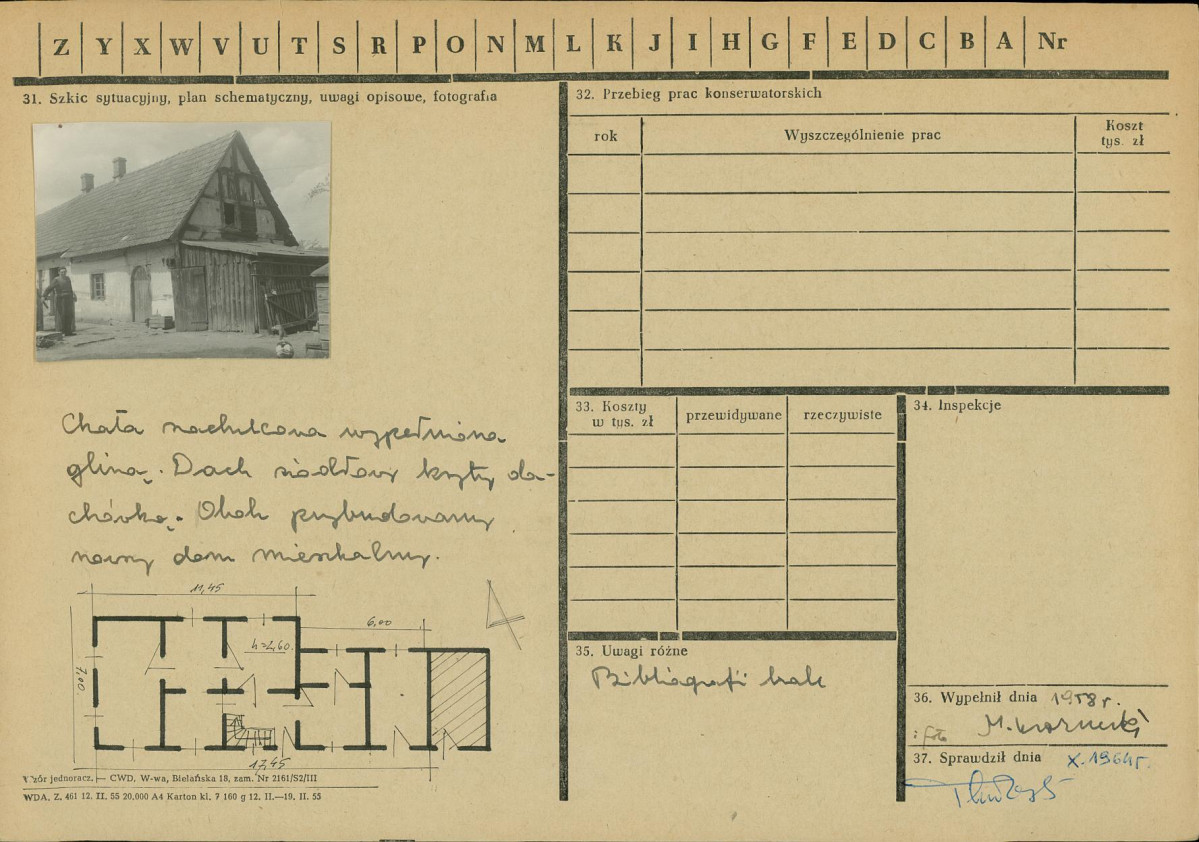 Z Y X W V U T S R P O N M L K J I H G F E D C B A Nr
31. Szkic sytuacyjny, plan schematyczny, uwagi opisowe, fotografia
Chata wypełniona
gliną. Dach siodłowy kryty da-
chówką. Obok przybudowany
nowy dom mieszkalny.
11,45
6,00
h=2,60.
7,00.
17,45
Wzór jednoracz. — CWD, W-wa, Bielańska 18, zam. Nr 2161/S2/III
WDA. Z. 461 12. II. 55 20.000 A4 Karton kl. 7 160 g 12. II.—19. II. 55
32. Przebieg prac konserwatorskich
rok
Wyszczególnienie prac
Koszt
tys. zł
33. Koszty
w tys. zł
przewidywane
rzeczywiste
34. Inspekcje
35. Uwagi różne
Bibliografi brak
36. Wypełnił dnia 1958 r.
i foto
37. Sprawdził dnia X.1964r.